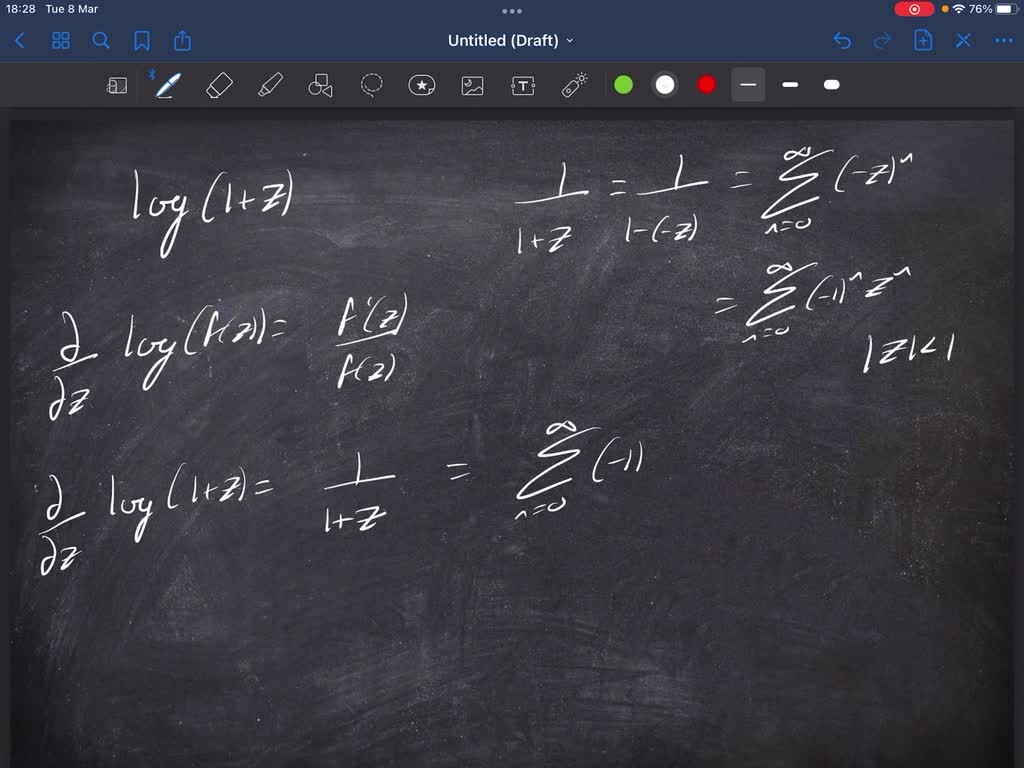 18:28 Tue 8 Mar
76%
Untitled (Draft)
T
log(1+z)
1/(1+z) = 1/(1-(-z)) = ∑_{n=0}^{∞} (-z)^n
= ∑_{n=0}^{∞} (-1)^n z^n
|z|<1
∂/∂z log(f(z)) = f'(z)/f(z)
∂/∂z log(1+z) = 1/(1+z) = ∑_{n=0}^{∞} (-1)